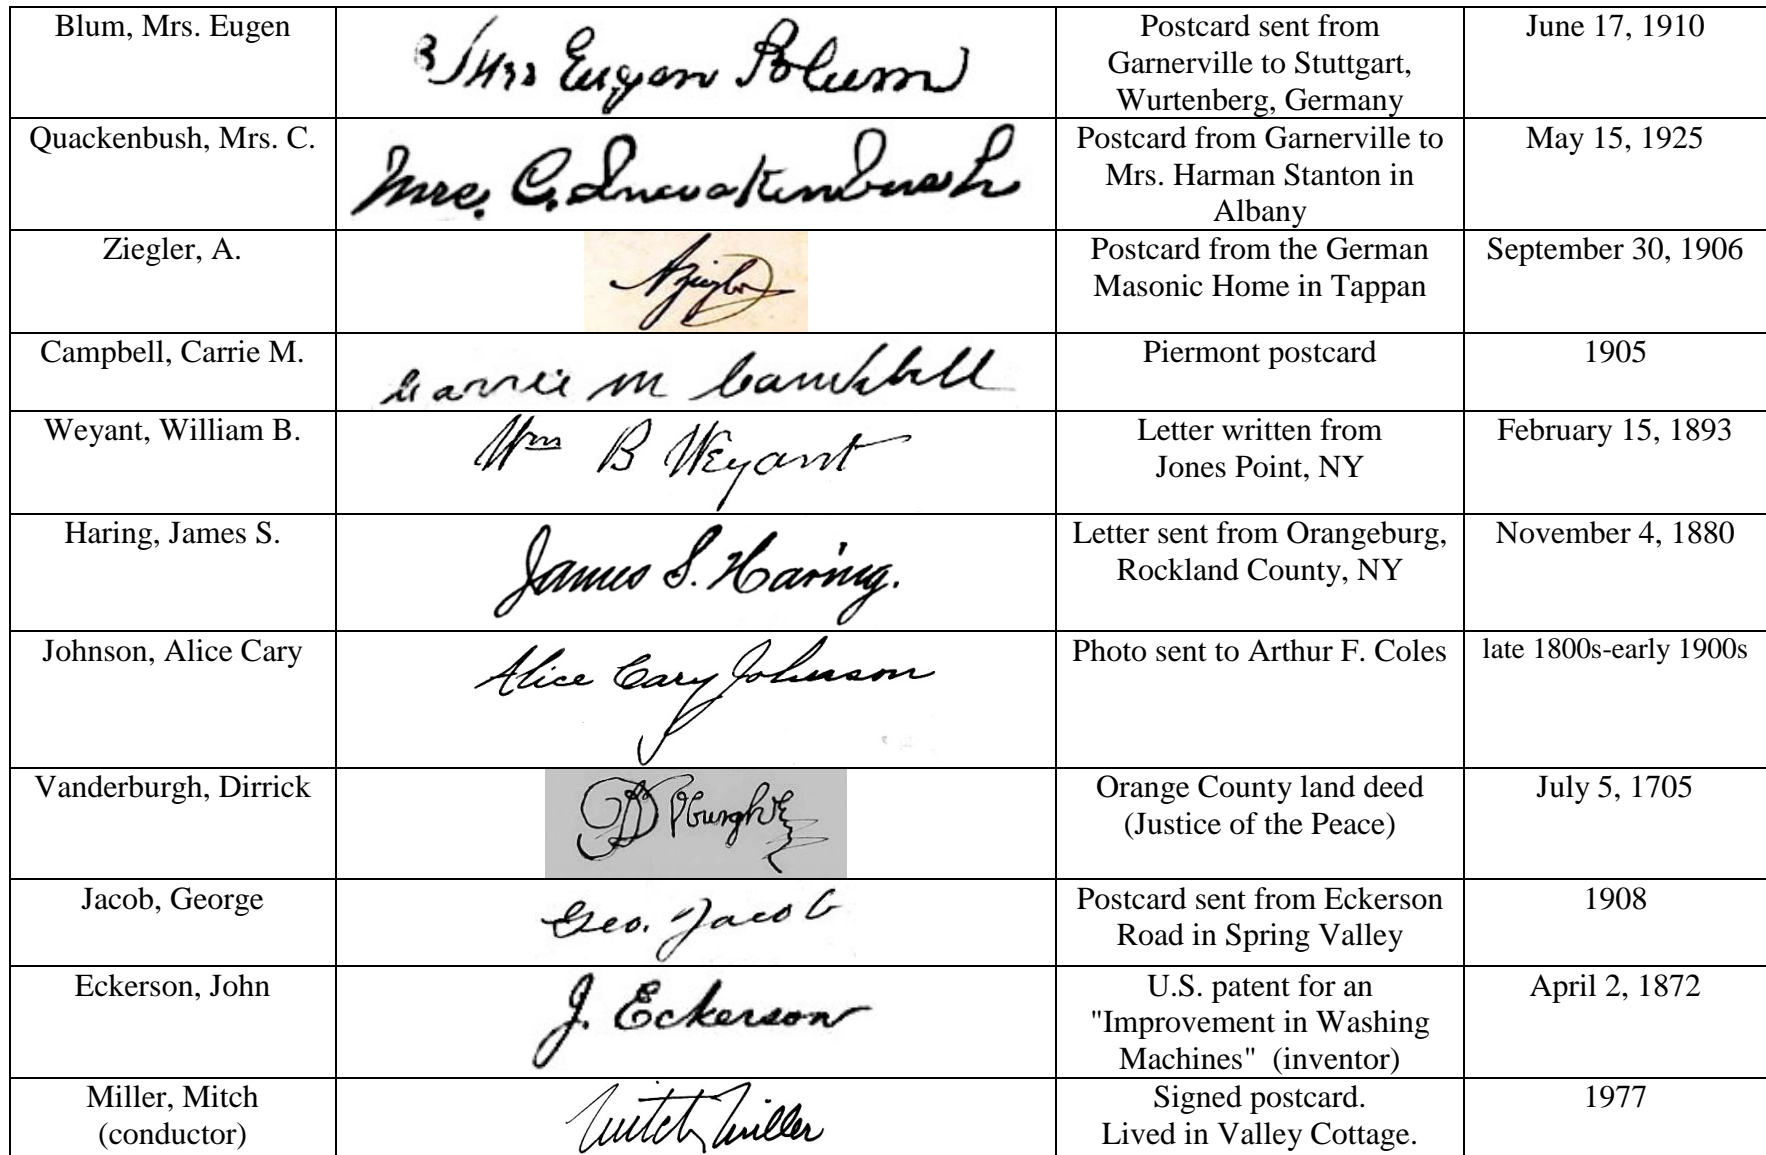 Blum, Mrs. Eugen
Mrs Eugen Blum
Postcard sent from
Garnerville to Stuttgart,
Wurtenberg, Germany
June 17, 1910
Quackenbush, Mrs. C.
Mrs. C. Quackenbush
Postcard from Garnerville to
Mrs. Harman Stanton in
Albany
May 15, 1925
Ziegler, A.
A Ziegler
Postcard from the German
Masonic Home in Tappan
September 30, 1906
Campbell, Carrie M.
Carrie M Campbell
Piermont postcard
1905
Weyant, William B.
Wm B Weyant
Letter written from
Jones Point, NY
February 15, 1893
Haring, James S.
James S. Haring.
Letter sent from Orangeburg,
Rockland County, NY
November 4, 1880
Johnson, Alice Cary
Alice Cary Johnson
Photo sent to Arthur F. Coles
late 1800s-early 1900s
Vanderburgh, Dirrick
Orange County land deed
(Justice of the Peace)
July 5, 1705
Jacob, George
Geo. Jacob
Postcard sent from Eckerson
Road in Spring Valley
1908
Eckerson, John
J. Eckerson
U.S. patent for an
"Improvement in Washing
Machines" (inventor)
April 2, 1872
Miller, Mitch
(conductor)
Mitch Miller
Signed postcard.
Lived in Valley Cottage.
1977